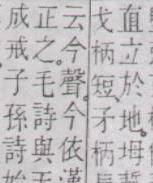 直立於地毋
戈柄短矛柄
云今聲今依
正之毛詩與
成戒子孫詩